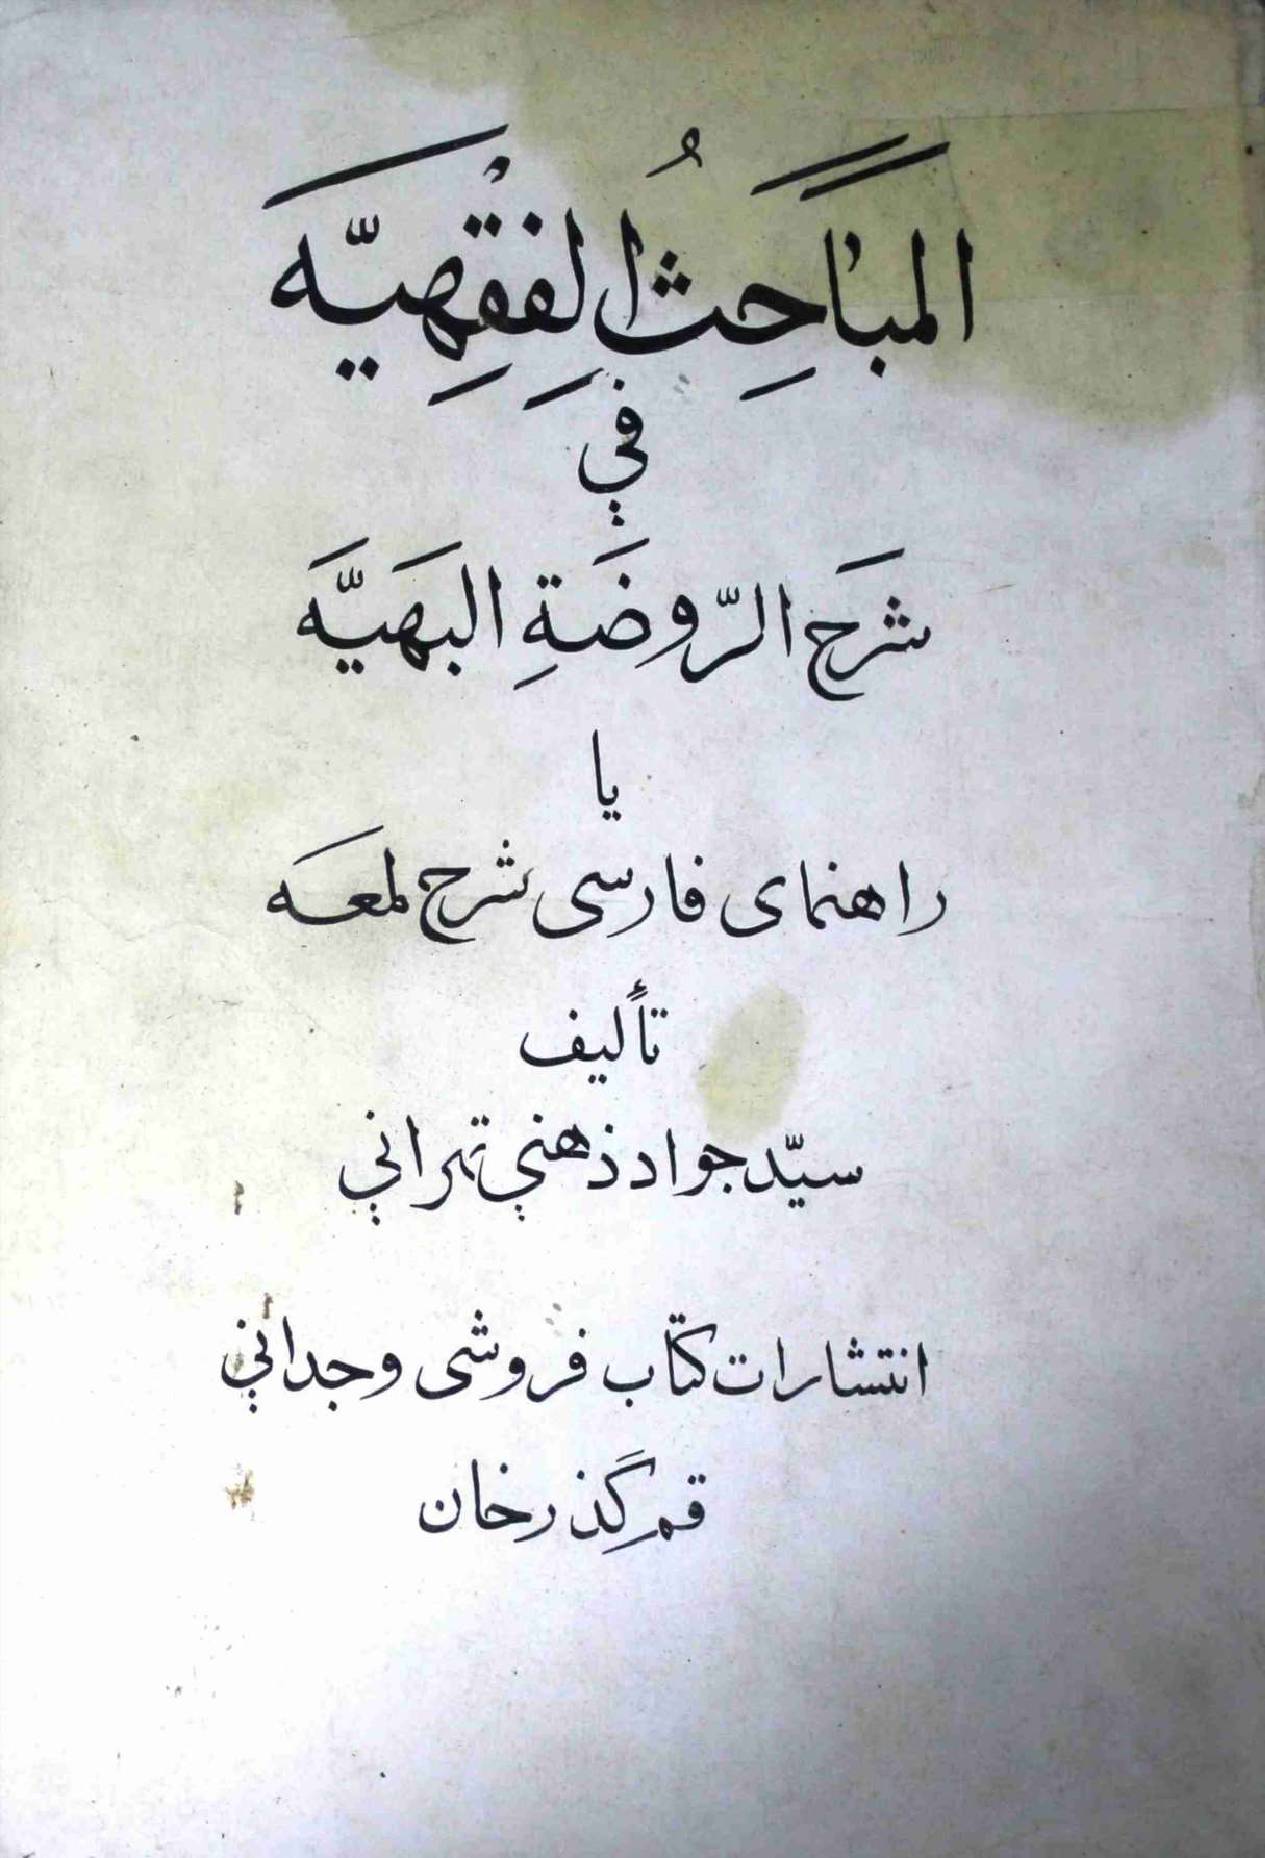 المَبْاحِثُ الفِقْهِيَّه
في
شرَح الرّوضَةِ البَهَيَّه
یا
راهنمای فارسی شرح لمعَه
تأليف
سيّد جواد ذهني تهراني
انتشارات کتاب فروشی وجداني
قم گذرخان